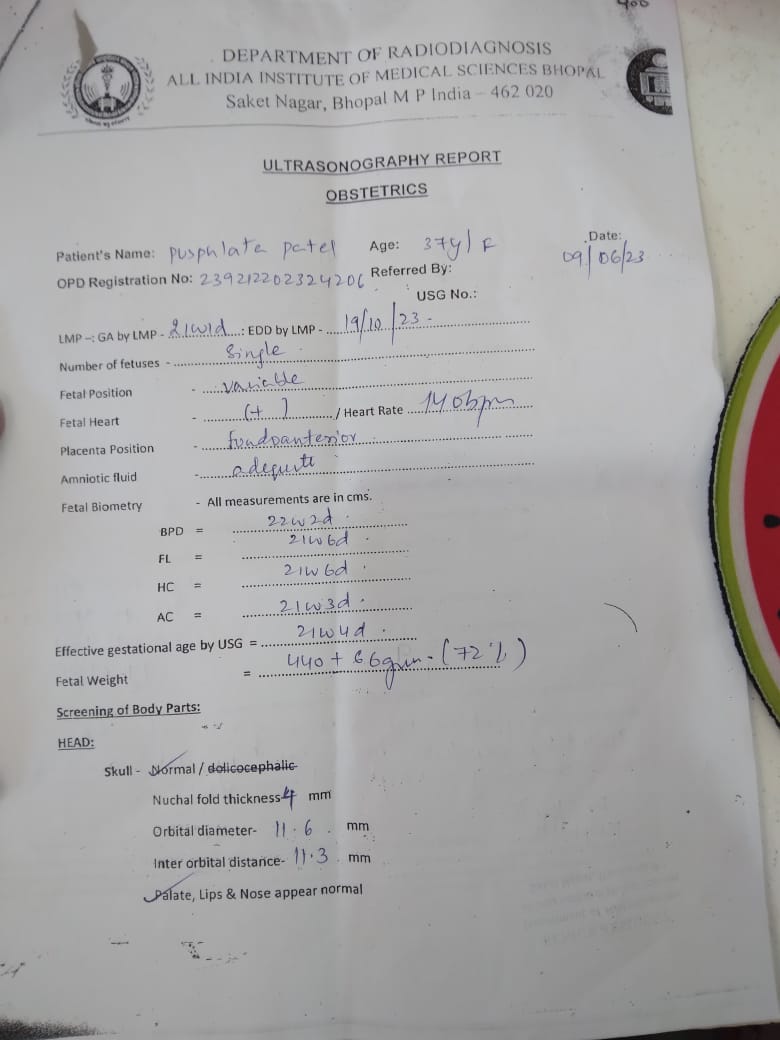 400
DEPARTMENT OF RADIODIAGNOSIS
ALL INDIA INSTITUTE OF MEDICAL SCIENCES BHOPAL
Saket Nagar, Bhopal M P India - 462 020
ULTRASONOGRAPHY REPORT
OBSTETRICS
Patient's Name: Pusphlata patel Age: 37y/F Date: 09/06/23
OPD Registration No: 239212202324206 Referred By:
USG No.:
LMP -: GA by LMP - 21w1d : EDD by LMP - 19/10/23 -
Number of fetuses - Single
Fetal Position - variable
Fetal Heart - (+) / Heart Rate 140bpm
Placenta Position - fundoanterior
Amniotic fluid - adequte
Fetal Biometry - All measurements are in cms.
BPD = 22w2d
FL = 21w6d
HC = 21w6d
AC = 21w3d
Effective gestational age by USG = 21w4d
Fetal Weight = 440 + 66gm - (72%)
Screening of Body Parts:
HEAD:
Skull - Normal / dolicocephalic
Nuchal fold thickness 4 mm
Orbital diameter- 11.6 mm
Inter orbital distance- 11.3 mm
Palate, Lips & Nose appear normal